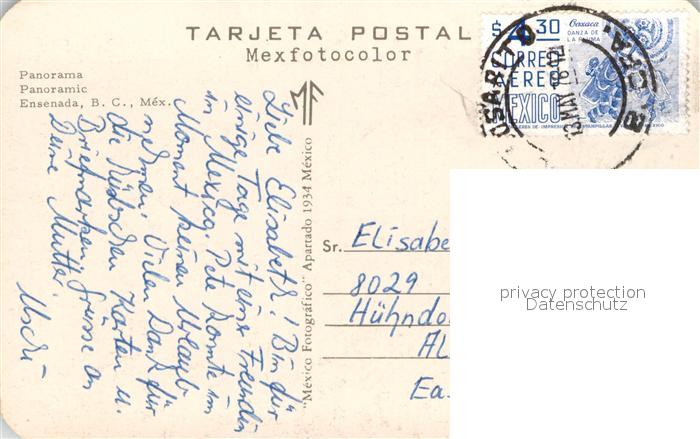 TARJETA POSTAL
Mexfotocolor
$4.30
Oaxaca
DANZA DE
LA PLUMA
CORREO
AEREO
MEXICO
Panorama
Panoramic
Ensenada, B. C., Méx.
MF
"México Fotográfico" Apartado 1934 México
Liebe Elisabeth! Bin für
einige Tage mit einer Freundin
in Mexico. Pete konnte im
Moment keinen Urlaub
nehmen. Vielen Dank für
die hübschen Karten u.
Briefmarken, Grüsse an
Deine Mutter.
Uschi
Sr. Elisabe
8029
Hühndo
AL
Ea.
privacy protection
Datenschutz